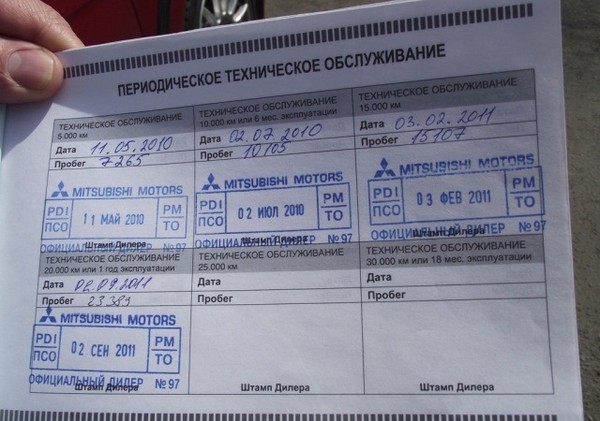 ПЕРИОДИЧЕСКОЕ ТЕХНИЧЕСКОЕ ОБСЛУЖИВАНИЕ
ТЕХНИЧЕСКОЕ ОБСЛУЖИВАНИЕ
5.000 км
Дата 11.05.2010
Пробег 7265
MITSUBISHI MOTORS
PDI
ПСО
11 МАЙ 2010
PM
ТО
ОФИЦИАЛЬНЫЙ ДИЛЕР № 97
Штамп Дилера
ТЕХНИЧЕСКОЕ ОБСЛУЖИВАНИЕ
10.000 км или 6 мес. эксплуатации
Дата 02.07.2010
Пробег 10105
MITSUBISHI MOTORS
PDI
ПСО
02 ИЮЛ 2010
PM
ТО
ОФИЦИАЛЬНЫЙ ДИЛЕР № 97
Штамп Дилера
ТЕХНИЧЕСКОЕ ОБСЛУЖИВАНИЕ
15.000 км
Дата 03.02.2011
Пробег 15107
MITSUBISHI MOTORS
PDI
ПСО
03 ФЕВ 2011
PM
ТО
ОФИЦИАЛЬНЫЙ ДИЛЕР № 97
Штамп Дилера
ТЕХНИЧЕСКОЕ ОБСЛУЖИВАНИЕ
20.000 км или 1 год эксплуатации
Дата 02.09.2011
Пробег 23389
MITSUBISHI MOTORS
PDI
ПСО
02 СЕН 2011
PM
ТО
ОФИЦИАЛЬНЫЙ ДИЛЕР № 97
Штамп Дилера
ТЕХНИЧЕСКОЕ ОБСЛУЖИВАНИЕ
25.000 км
Дата
Пробег
Штамп Дилера
ТЕХНИЧЕСКОЕ ОБСЛУЖИВАНИЕ
30.000 км или 18 мес. эксплуатации
Дата
Пробег
Штамп Дилера